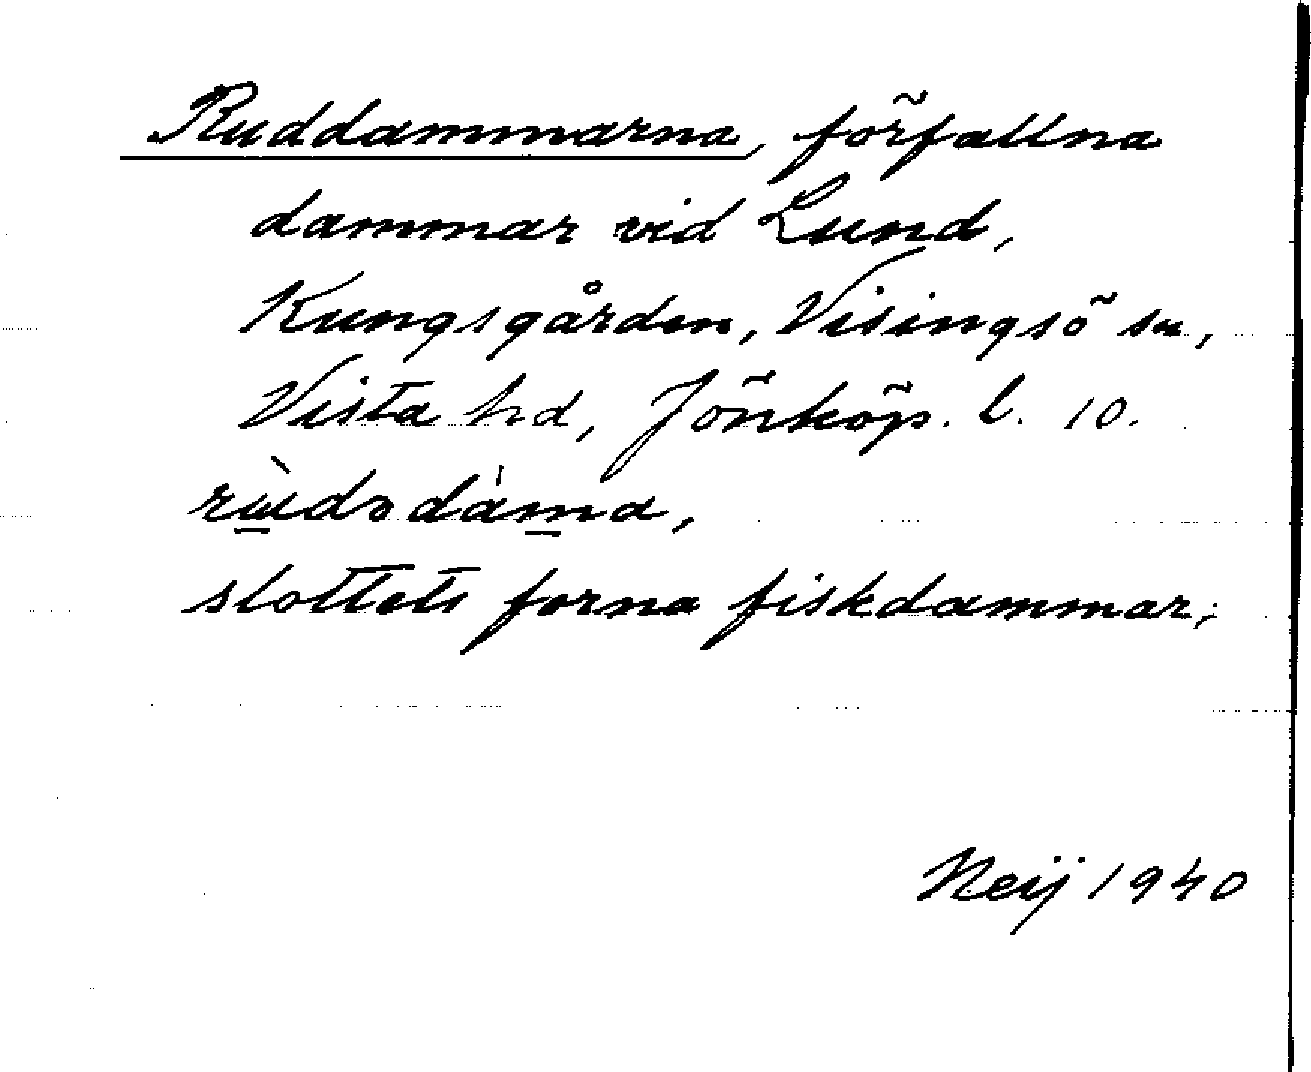 Ruddammarna, förfallna
dammar vid Lund,
Kungsgården, Visingsö sn,
Vista hd, Jönköp. l. 10.
slottets forna fiskdammar.
Neij 1940